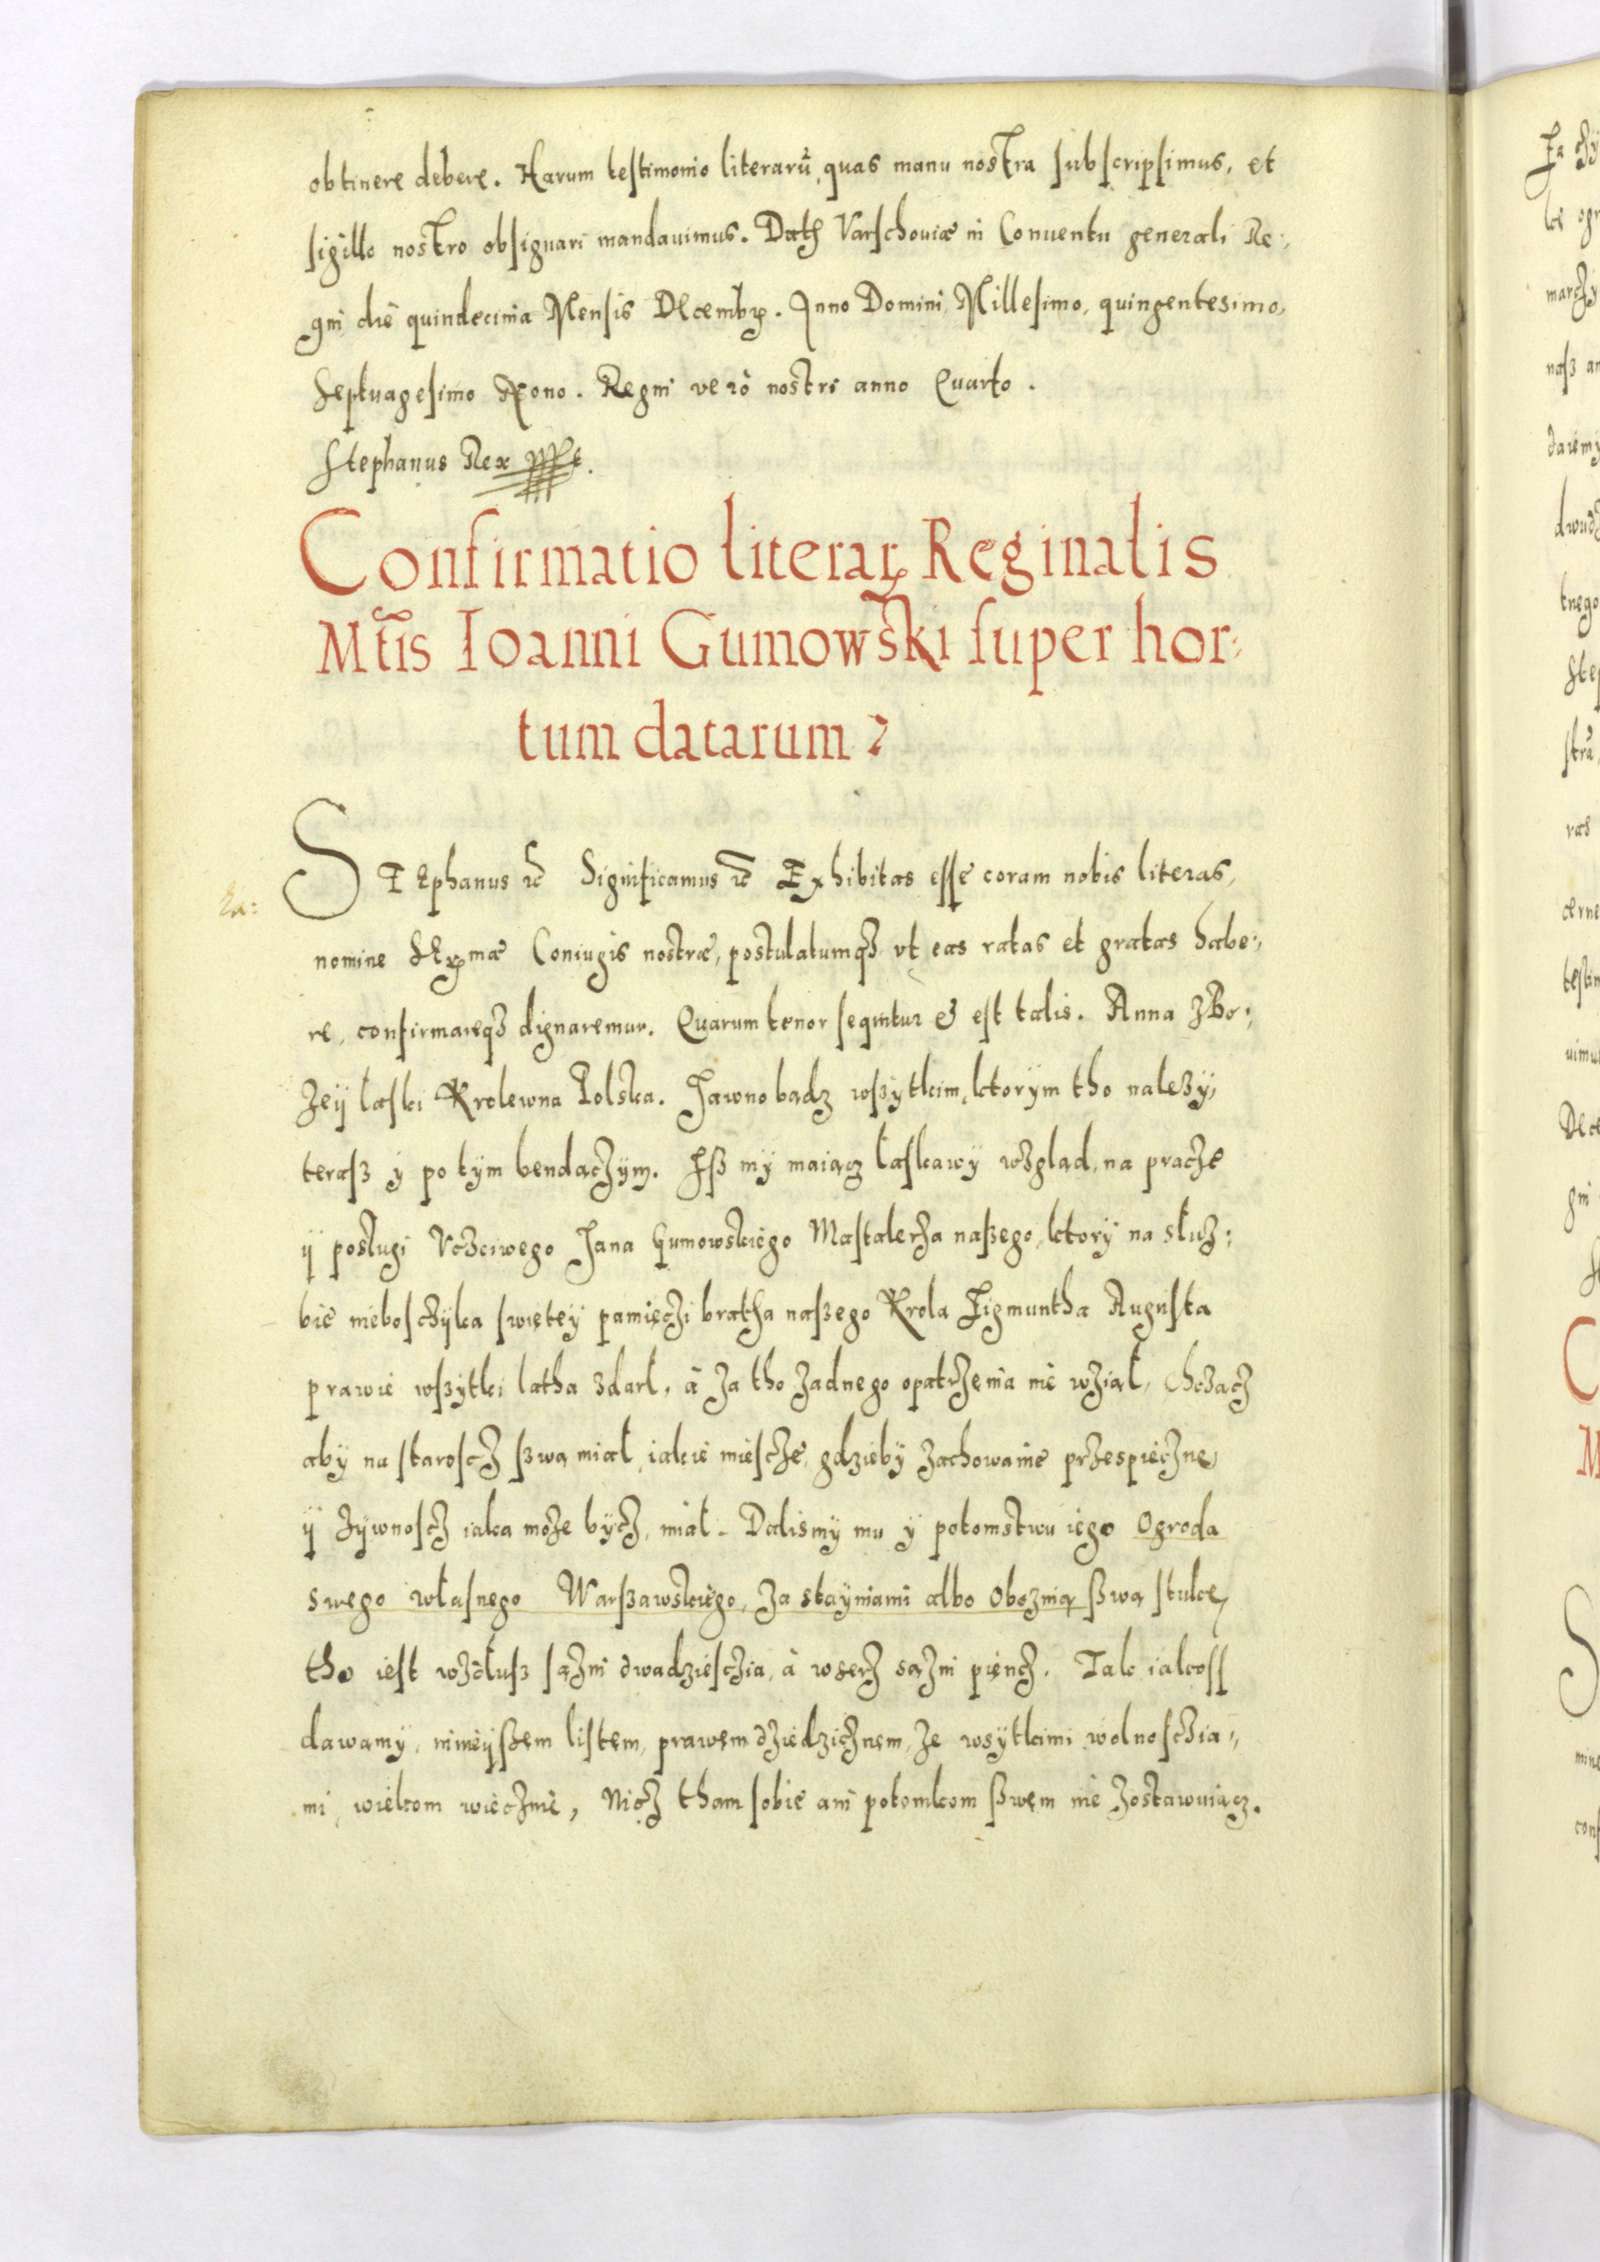 obtinere debere. Harum testimonio literarũ, quas manu nostra subscripsimus, et
sigillo nostro obsignari mandauimus. Dat Varschouiæ in Conuentu generali Re:
gni die quindecima Mensis Decembr. Anno Domini Millesimo, quingentesimo,
septuagesimo Nono. Regni verò nostri anno Quarto.
Stephanus Rex
Confirmatio literar Reginalis
Mtis Ioanni Gumowski super hor:
tum datarum
STEphanus etc Significamus etc Exhibitas esse coram nobis literas,
nomine Sermæ Coniugis nostræ, postulatumqꝫ vt eas ratas et gratas habe:
re, confirmareqꝫ dignaremur. Quarum tenor sequitur et est talis. Anna z Bo:
zeij łaski Krolewna Polska. Jawno bądz wszÿtkim, ktorÿm tho należÿ,
terasz ÿ po tÿm bendączÿm. Isz mÿ maiącz łaskawÿ wzgląd, na pracze
ij posługi Vczciwego Jana Gumowskiego Mastalerza naszego, ktorÿ na służ:
bie nieboszczÿka swięteÿ pamięczi bratha naszego Krola Zigmuntha Augusta
prawie wszÿtki latha zdarł, à za tho żadnego opatrzenia nie wziął, chcząc
abÿ na staroscz szwą miał iakie miescze, gdziebÿ zachowanie przespieczne,
ij żÿwnoscz iaka może bÿcz, miał. Dalismÿ mu ÿ potomstwu iego Ogroda
swego własnego Warszawskiego, za staÿniami albo Oboznią szwą stukę,
tho iest wzdłusz sążni dwadziesczia, à wserz sążni piencz. Tak iakoss
dawamÿ, ninieijszem listem, prawem dziedzicznem, ze wsÿtkimi wolnosczia:
mi, wiekom wiecznie, Nicz tham sobie ani potomkom szwem nie zostawuiącz.